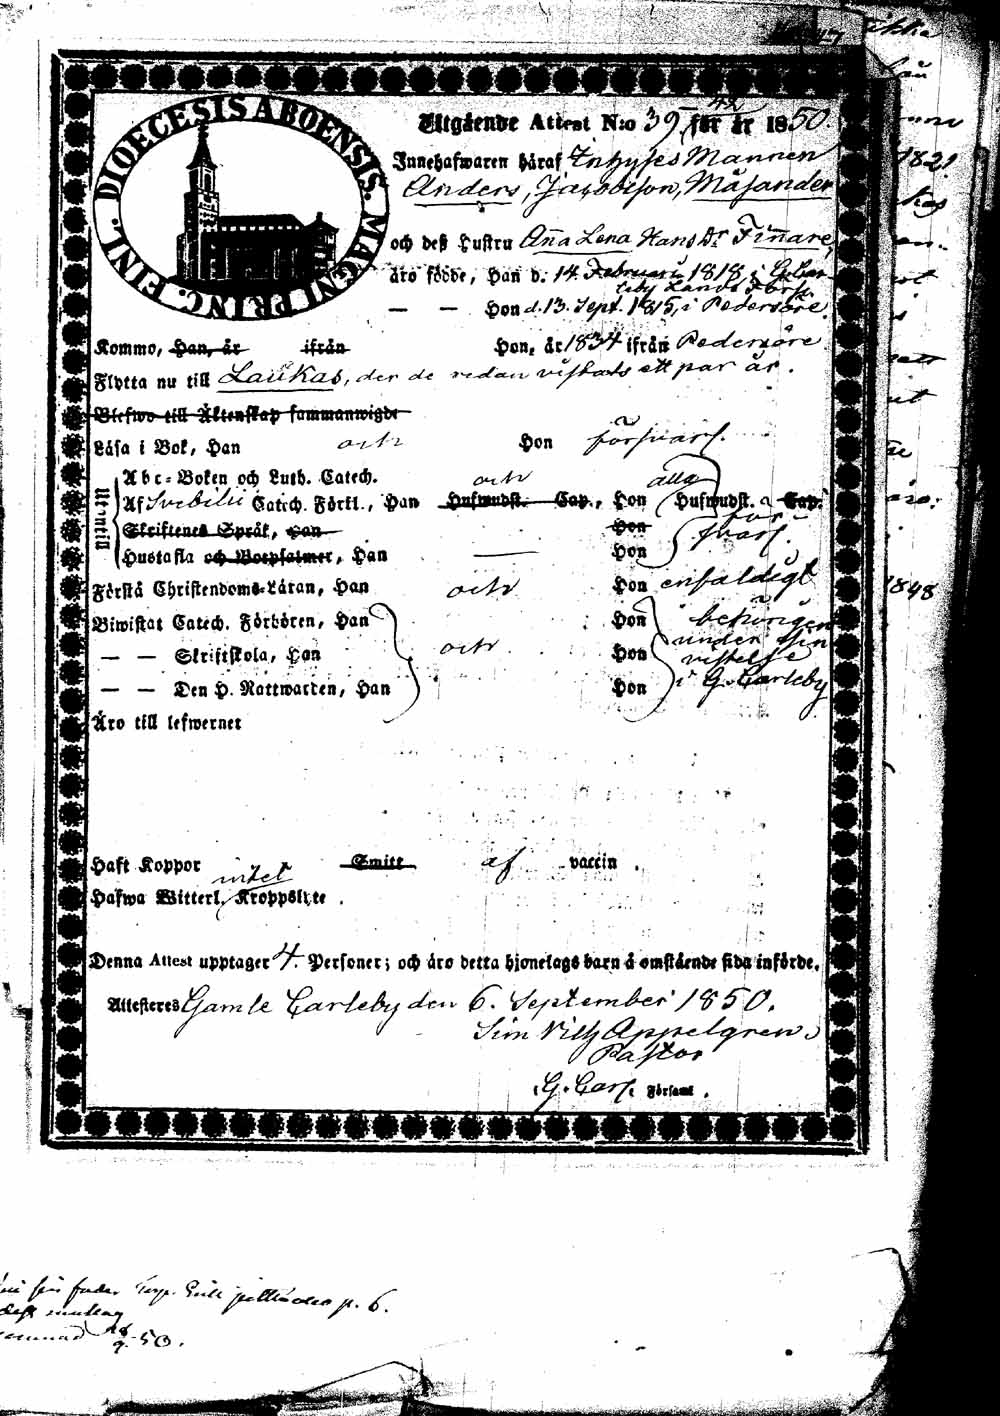 FINL. DIOECESIS ABOENSIS. MAGNI PRINC.
42
Utgående Attest N:o 39, för år 1850.
Innehafwaren häraf Inhyses Mannen
Anders, Jacobsson, Måsander
och deß Hustru Aña Lena Hans Dr Fiñare,
äro födde, Han d. 14 Februari 1818 i G. Car-
leby Lands Förs.
— — Hon d. 13. Sept. 1815, i Pedersöre.
Kommo, Han, år ifrån Hon, år 1834 ifrån Pedersöre
Flytta nu till Laukas, der de redan vistats ett par år.
Blefwo till Äktenskap sammanwigde
Läsa i Bok, Han och Hon försvarl.
Utantill
Abc-Boken och Luth. Catech. och alla
Af Svebilii Catech. Förkl., Han Hufwudst. Cap., Hon Hufwudst. Cap.
Skriftenes Språk, Han Hon för-
svarl.
Hustafla och Botpsalmer, Han — Hon
Förstå Christendoms-Läran, Han och Hon enfaldigt
Biwistat Catech. Förhören, Han Hon behörigen
— — Skriftskola, Han och Hon under sin
vistelse
— — Den H. Nattwarden, Han Hon i G. Carleby
Äro till lefwernet
Haft Koppor Smitt af vaccin .
intet
Hafwa Witterl. Kroppslyte .
Denna Attest upptager 4. Personer; och äro detta hjonelags barn å omstående sida införde.
Attesteres Gamle Carleby den 6. September 1850.
Sim Vilh Appelgren.
Pastor
i G. Carl. Församl.
fader p. 6.
50.
1821
1848